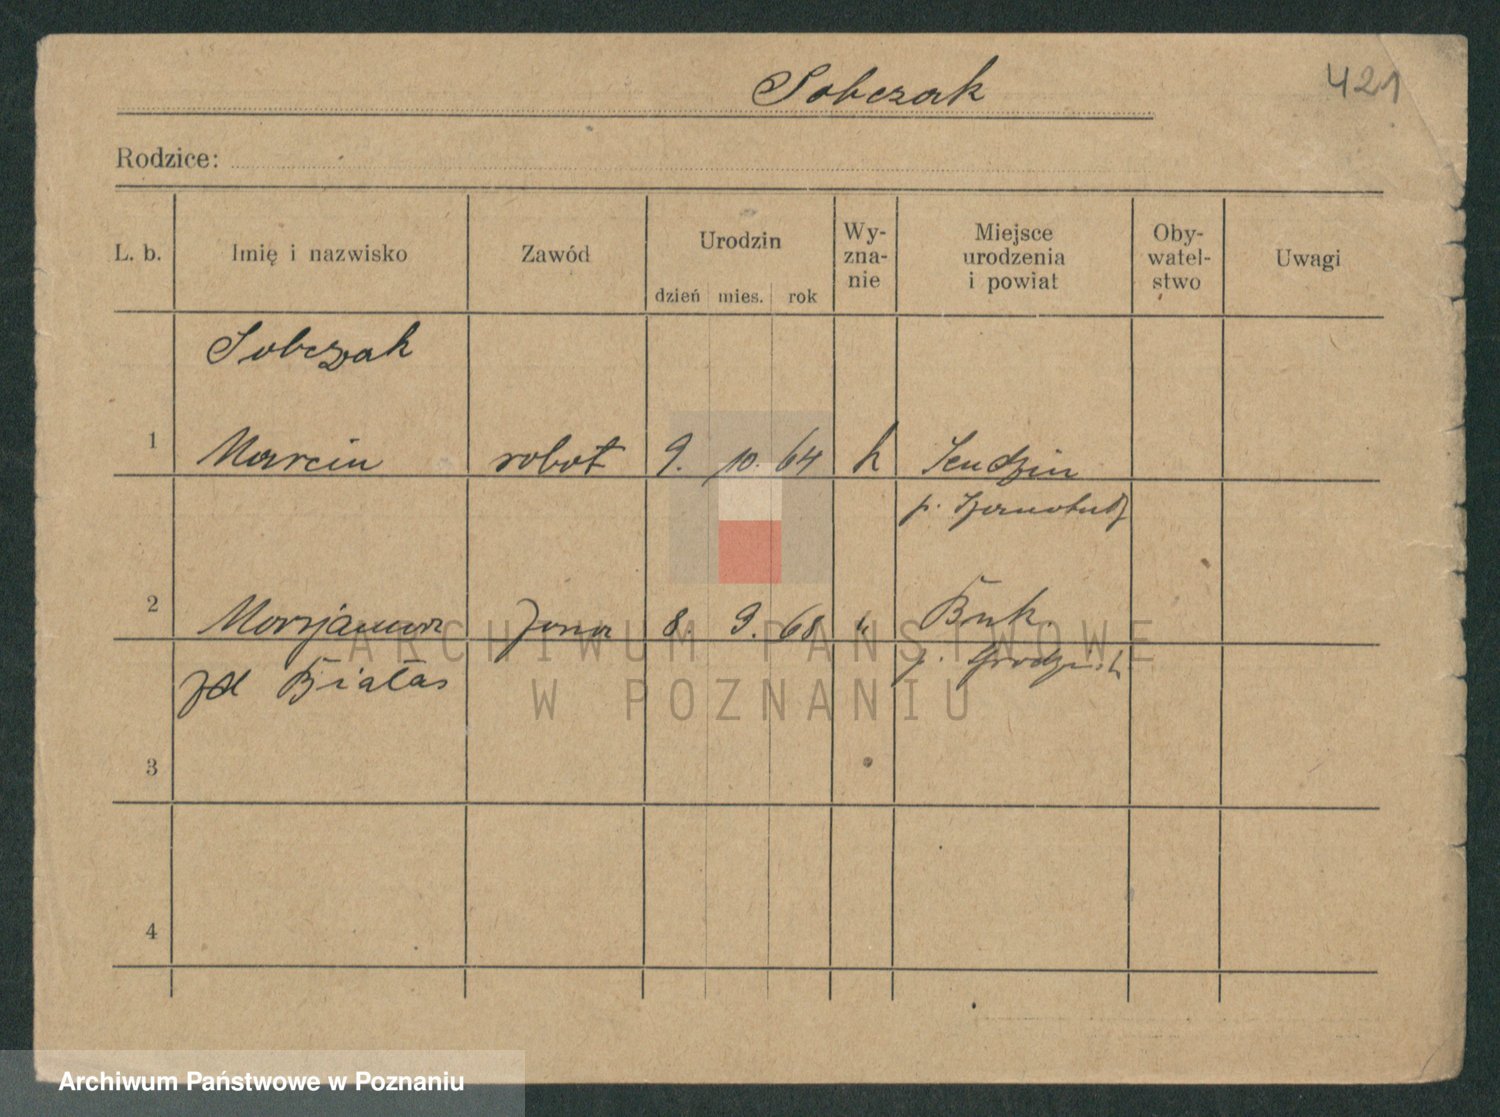 Sobczak
421
Rodzice:
L. b.
Imię i nazwisko
Zawód
Urodzin
dzień mies. rok
Wy-
zna-
nie
Miejsce
urodzenia
i powiat
Oby-
watel-
stwo
Uwagi
Sobczak
1 Marcin robot 9. 10. 64 k Sendzin
p. Szamotuły
2 Marjanna żona 8. 9. 68 " Buk.
zd Białas p. Grodzisk
3
4
ARCHIWUM PAŃSTWOWE
W POZNANIU
Archiwum Państwowe w Poznaniu